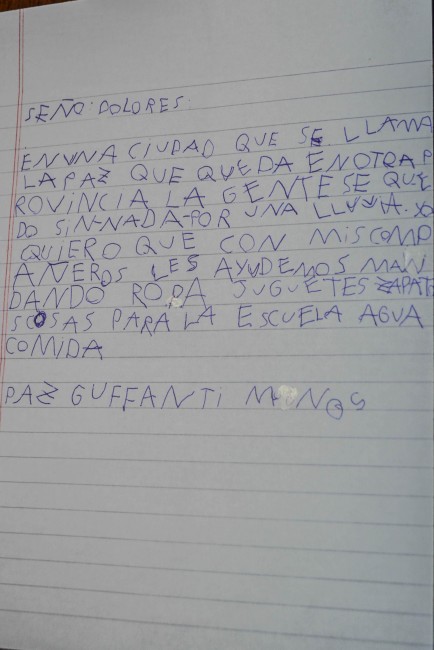 SEÑO: DOLORES:
EN UNA CIUDAD QUE SE LLAMA
LA PAZ QUE QUEDA EN OTRA P
ROVINCIA LA GENTE SE QUE
DO SIN-NADA-POR UNA LLUVIA. YO
QUIERO QUE CON MIS COMP
AÑEROS LES AYUDEMOS MAN
DANDO ROPA JUGUETES ZAPATO
S COSAS PARA LA ESCUELA AGUA
COMIDA
PAZ GUFFANTI